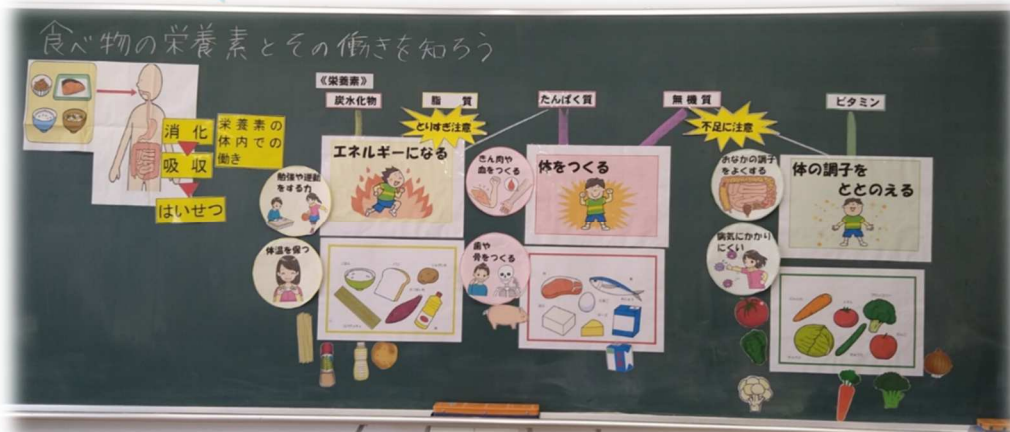 食べ物の栄養素とその働きを知ろう
消化
吸収
はいせつ
栄養素の
体内での
働き
《栄養素》
炭水化物
脂質
たんぱく質
無機質
ビタミン
とりすぎ注意
不足に注意
エネルギーになる
勉強や運動
をする力
体温を保つ
体をつくる
きん肉や
血をつくる
歯や
骨をつくる
体の調子を
ととのえる
おなかの調子
をよくする
病気にかかり
にくい